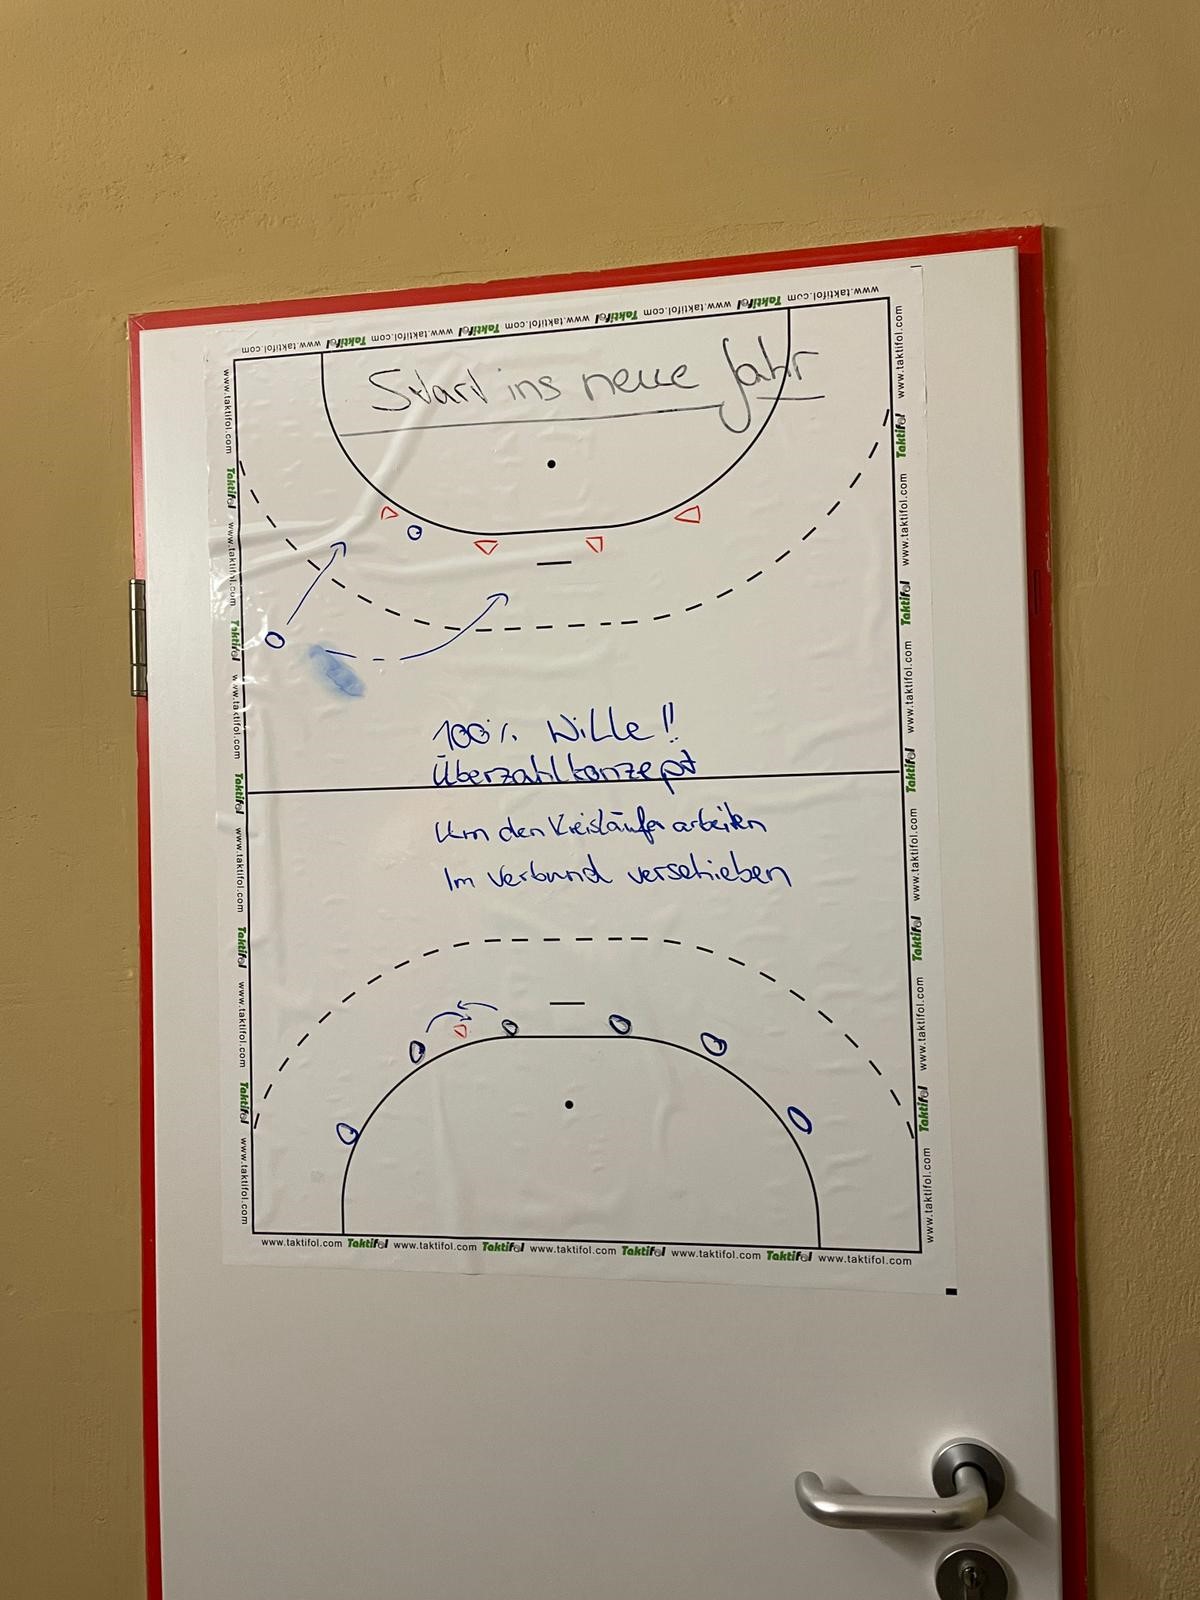 www.taktifol.com Taktifol www.taktifol.com Taktifol www.taktifol.com Taktifol www.taktifol.com Taktifol www.taktifol.com
Start ins neue Jahr
100% Wille!!
Überzahlkonzept
Um den Kreisläufer arbeiten
Im Verbund verschieben
www.taktifol.com Taktifol www.taktifol.com Taktifol www.taktifol.com Taktifol www.taktifol.com Taktifol www.taktifol.com
www.taktifol.com Taktifol www.taktifol.com Taktifol www.taktifol.com Taktifol www.taktifol.com Taktifol www.taktifol.com Taktifol www.taktifol.com
www.taktifol.com Taktifol www.taktifol.com Taktifol www.taktifol.com Taktifol www.taktifol.com Taktifol www.taktifol.com Taktifol www.taktifol.com